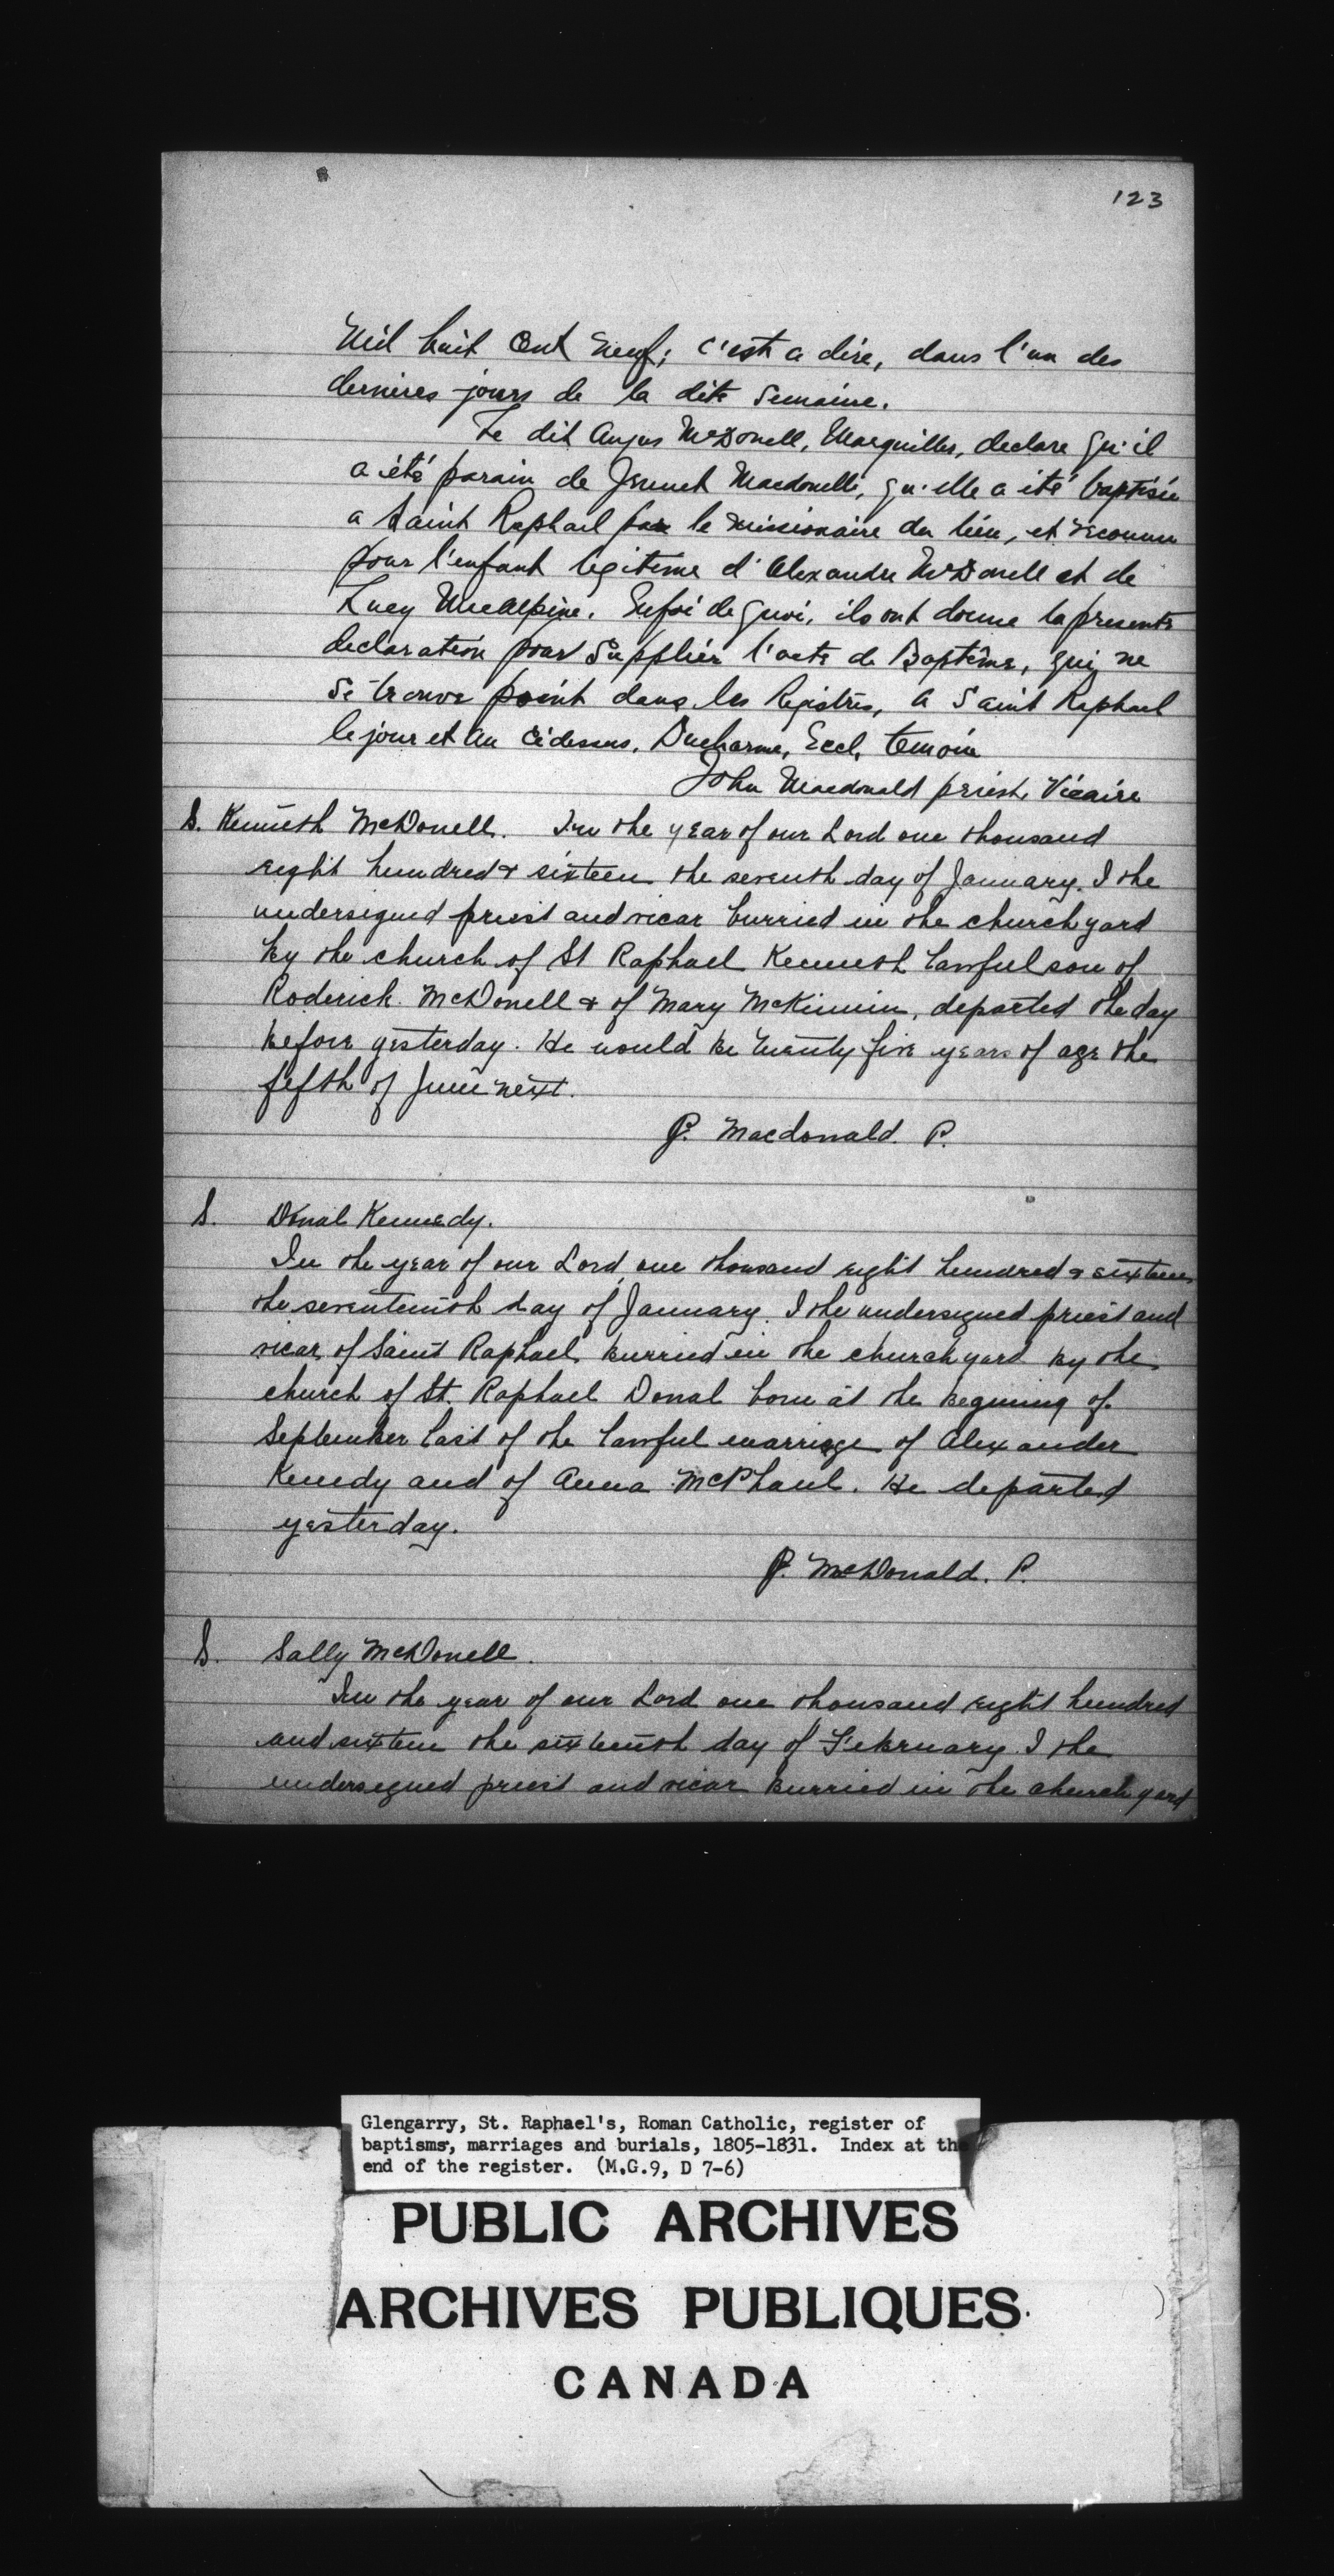 123
Mil huit Cent Neuf; c'est a dire, dans l'un des
dernieres jours de la dite Semaine.
Le dit Angus McDonell, Marguiller, declare qu'il
a été parain de Jennet Macdonell, qu'elle a été baptisée
a Saint Raphael par le missionaire du lieu, et reconnu
pour l'enfant legitime d'Alexandre McDonell et de
Lucy McAlpine. Enfoi de quoi, ils ont donne la presente
declaration pour Supplier l'acte de Baptême, qui ne
se trouve point dans les Registres, a Saint Raphael
le jour et an cidessus, Ducharme, Eccl, temoin
John Macdonald priest, Vicaire
S. Kenneth McDonell. In the year of our Lord one thousand
eight hundred & sixteen the seventh day of January. I the
undersigned priest and vicar burried in the church yard
by the church of St Raphael Kenneth lawful son of
Roderick McDonell & of Mary McKinnin, departed the day
before yesterday. He would be twenty five years of age the
fifth of June next.
J. Macdonald. P.
S. Donal Kennedy.
In the year of our Lord, one thousand eight hundred & sixteen
the seventeenth day of January. I the undersigned priest and
vicar of Saint Raphael burried in the church yard by the
church of St. Raphael Donal born at the begining of
September last of the lawful marriage of Alexander
Kenedy and of Anna McPhaul. He departed
yesterday.
J. McDonald. P.
S. Sally McDonell.
In the year of our Lord one thousand eight hundred
and sixteen the sixteenth day of February I the
undersigned priest and vicar burried in the church yard
Glengarry, St. Raphael's, Roman Catholic, register of
baptisms, marriages and burials, 1805-1831. Index at the
end of the register. (M.G.9, D 7-6)
PUBLIC ARCHIVES
ARCHIVES PUBLIQUES
CANADA